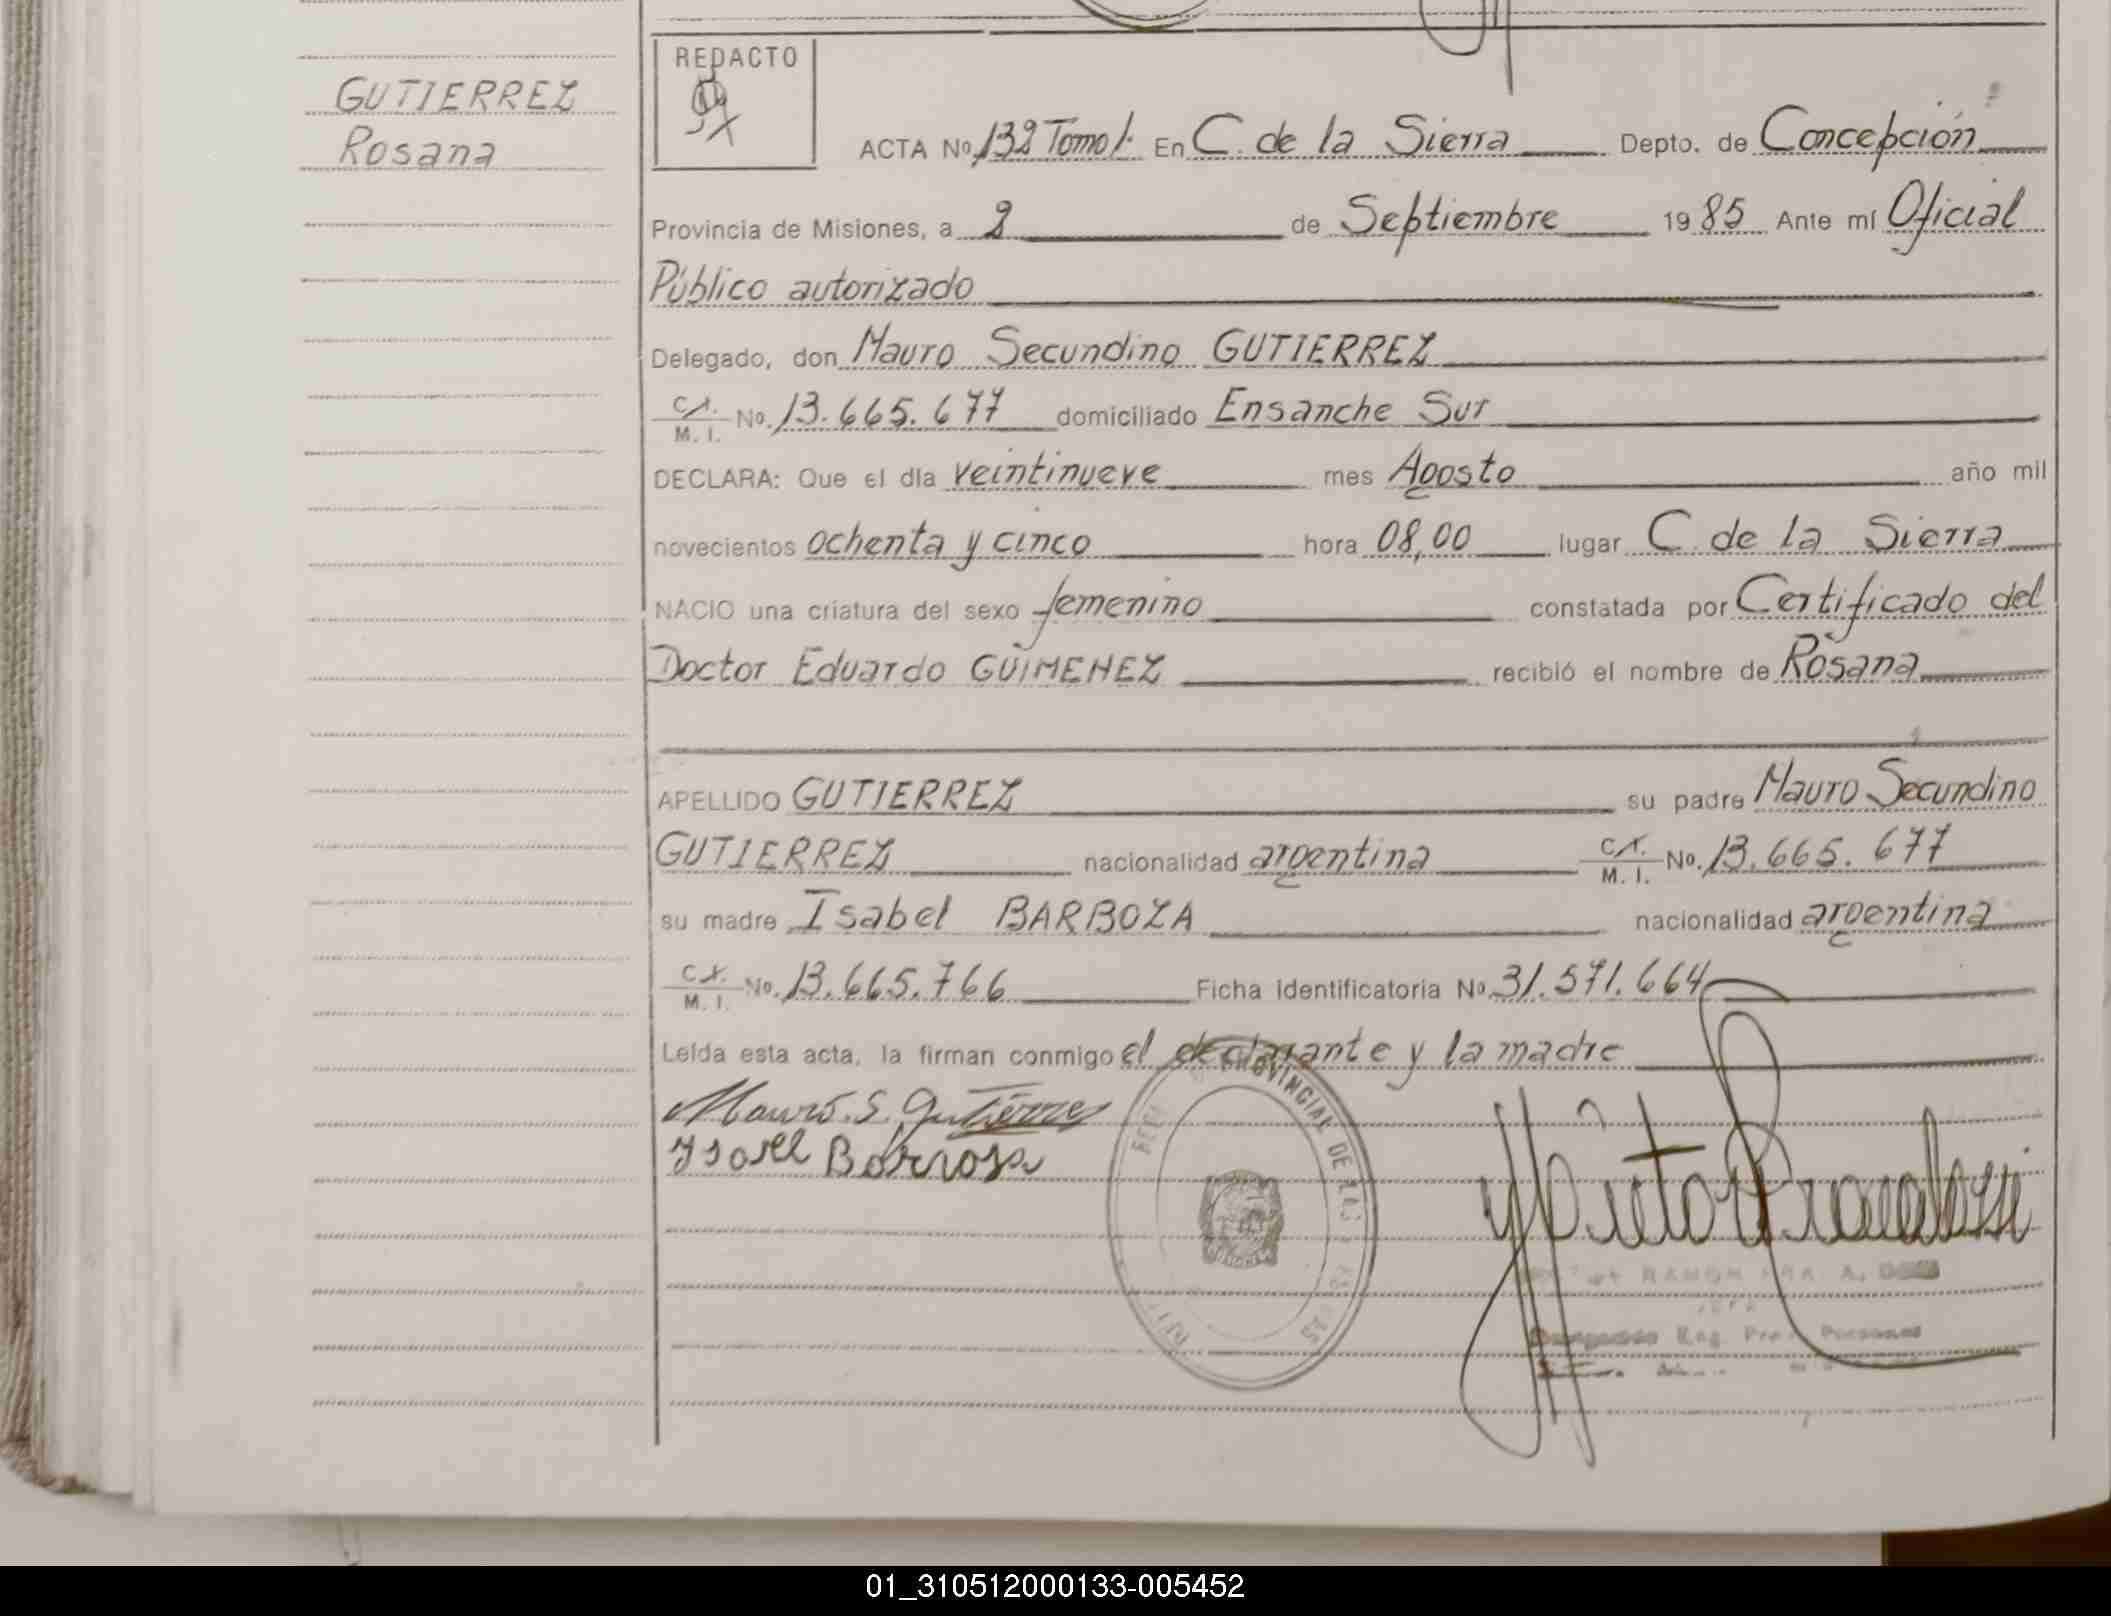 GUTIERREZ
Rosana
REDACTO
ACTA No. 132 Tomo I. En C. de la Sierra Depto. de Concepción
Provincia de Misiones, a 2 de Septiembre 1985 Ante mí Oficial
Público autorizado
Delegado, don Mauro Secundino GUTIERREZ
C.I. M. I. No. 13.665.677 domiciliado Ensanche Sur
DECLARA: Que el día veintinueve mes Agosto año mil
novecientos ochenta y cinco hora 08,00 lugar C. de la Sierra
NACIO una criatura del sexo femenino constatada por Certificado del
Doctor Eduardo GÜIMENEZ recibió el nombre de Rosana
APELLIDO GUTIERREZ su padre Mauro Secundino
GUTIERREZ nacionalidad argentina C.I. M. I. No. 13.665.677
su madre Isabel BARBOZA nacionalidad argentina
C.I. M. I. No. 13.665.766 Ficha Identificatoria No 31.571.664
Leída esta acta, la firman conmigo el declarante y la madre
Mauro. S. Gutierrez
PROVINCIAL DE LAS
RAMON
Reg. Personas
01_310512000133-005452